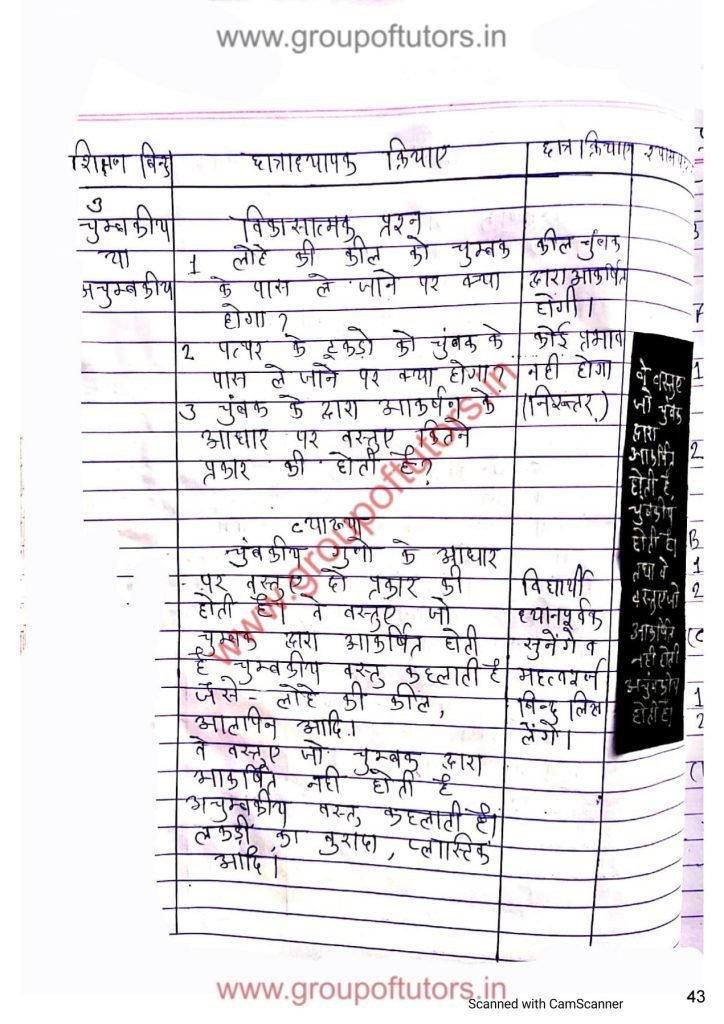 www.groupoftutors.in
शिक्षण बिन्दु
छात्राध्यापक क्रियाए
छात्र क्रियाए
श्यामपट
3
चुम्बकीय
या
अचुम्बकीय
विकासात्मक प्रश्न
1 लोहे की कील को चुम्बक
के पास ले जाने पर क्या
होगा ?
2 पत्थर के टूकड़ो को चुंबक के
पास ले जाने पर क्या होगा ?
3 चुंबक के द्वारा आकर्षन के
आधार पर वस्तुए कितने
प्रकार की होती है ?
व्याख्या
चुंबकीय गुणो के आधार
पर वस्तुए दो प्रकार की
होती है। वे वस्तुए जो
चुम्बक द्वारा आकर्षित होती
है चुम्बकीय वस्तु कहलाती है
जैसे - लोहे की कील,
आलपिन आदि।
वे वस्तुए जो चुम्बक द्वारा
आकर्षित नही होती है
अचुम्बकीय वस्तु कहलाती है।
लकड़ी का बुरादा, प्लास्टिक
आदि।
कील चुंबक
द्वारा आकर्षित
होंगी।
कोई प्रभाव
नही होगा
(निरुत्तर)
विद्यार्थी
ध्यानपूर्वक
सुनेंगे व
महत्वपूर्ण
बिन्दु लिख
लेंगे।
वे वस्तुए
जो चुंबक
द्वारा
आकर्षित
होती है,
चुंबकीय
होती है।
तथा वे
वस्तुए जो
आकर्षित
नही होती
अचुंबकीय
होती है।
www.groupoftutors.in
www.groupoftutors.in
Scanned with CamScanner
43